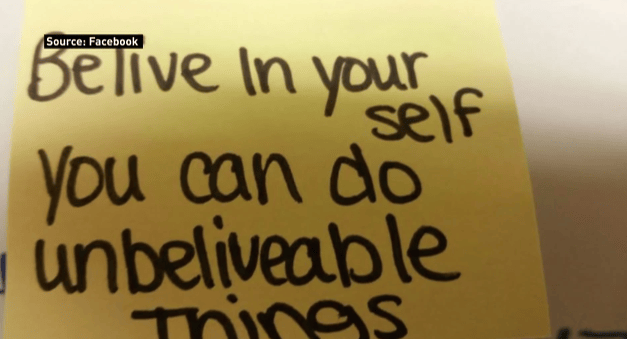 Source: Facebook
Belive In your
self
You can do
unbeliveable
Things